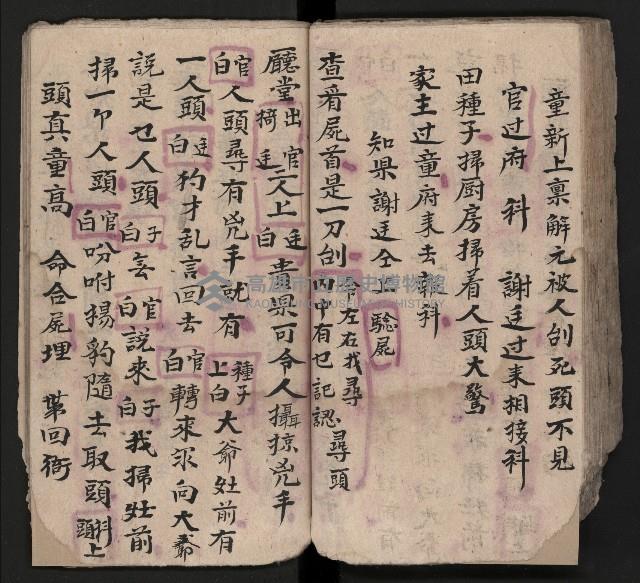 童新上禀解元被人刣死頭不見
官过府 科 謝廷过来相接科
田種子掃厨房掃着人頭大驚
家主过童府来去 科
知県謝廷仝 騐屍
查看屍首是一刀刣 左右找尋 中有乜記認 尋頭
廳堂 出官 掎廷 二人上 廷白 貴県可令人攝掠兇手
官白 人頭尋有兇手就有 種子上白 大爺灶前有
一人頭 廷白 犳才乱言回去 官白 轉来求向大爺
説是乜人頭 子白 玄 官白 説来 子白 我掃灶前
掃一个人頭 官白 吩咐揚豹隨去取頭 科上頭
頭真童高 命合屍埋 葉回衙
高雄市立歷史博物館
KAOHSIUNG MUSEUM OF HISTORY